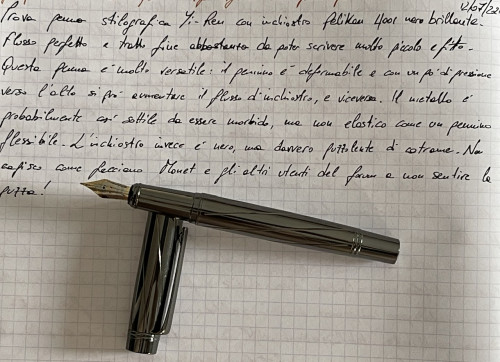 12/07/22
Prova penna stilografica Yi-Ren con inchiostro Pelikan 4001 nero brillante.
Flusso perfetto e tratto fine abbastanza da poter scrivere molto piccolo e fitto.
Questa penna è molto versatile: il pennino è deformabile e con un po' di pressione
verso l'alto si può aumentare il flusso d'inchiostro, e viceversa. Il metallo è
probabilmente così sottile da essere morbido, ma non elastico come un pennino
flessibile. L'inchiostro invece è nero, ma davvero puzzolente di catrame. Non
capisco come facciano Monet e gli altri utenti del forum a non sentire la
puzza!